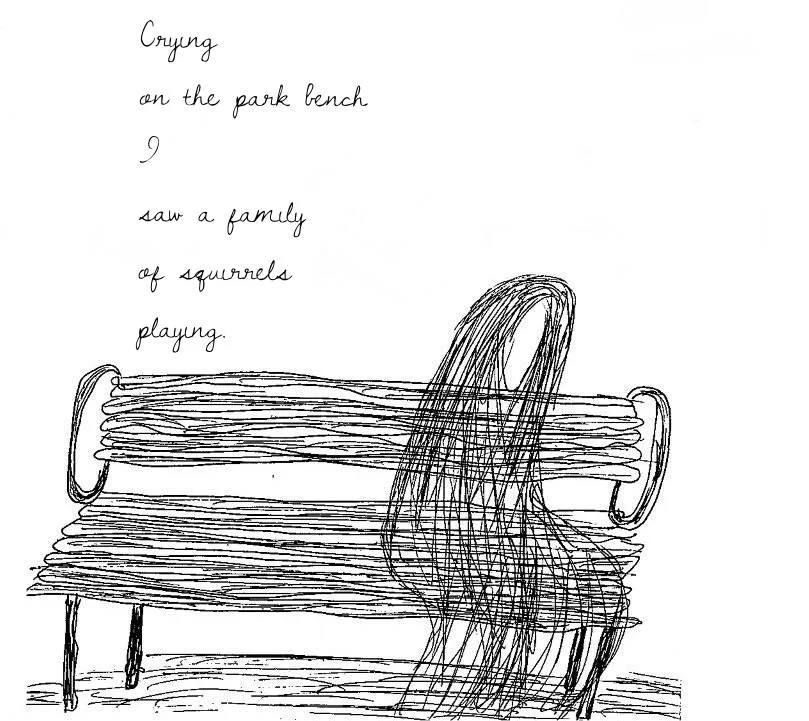 Crying
on the park bench
I
saw a family
of squirrels
playing.